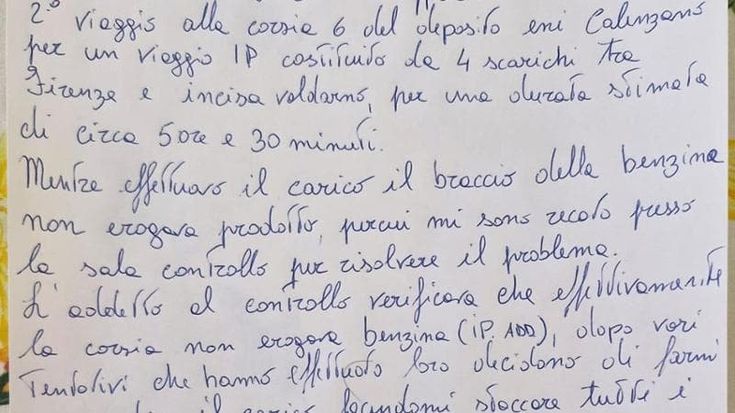 2° viaggio alla corsia 6 del deposito eni Calenzano
per un viaggio IP costituito da 4 scarichi tra
Firenze e incisa valdarno, per una durata stimata
di circa 5 ore e 30 minuti.
Mentre effettuavo il carico il braccio della benzina
non erogava prodotto, percui mi sono recato presso
la sala controllo per risolvere il problema.
L'addetto al controllo verificava che effettivamente
la corsia non erogava benzina (iP. ADD), dopo vari
Tentativi che hanno effettuato loro decidono di farmi
il carico facendomi staccare tutti i